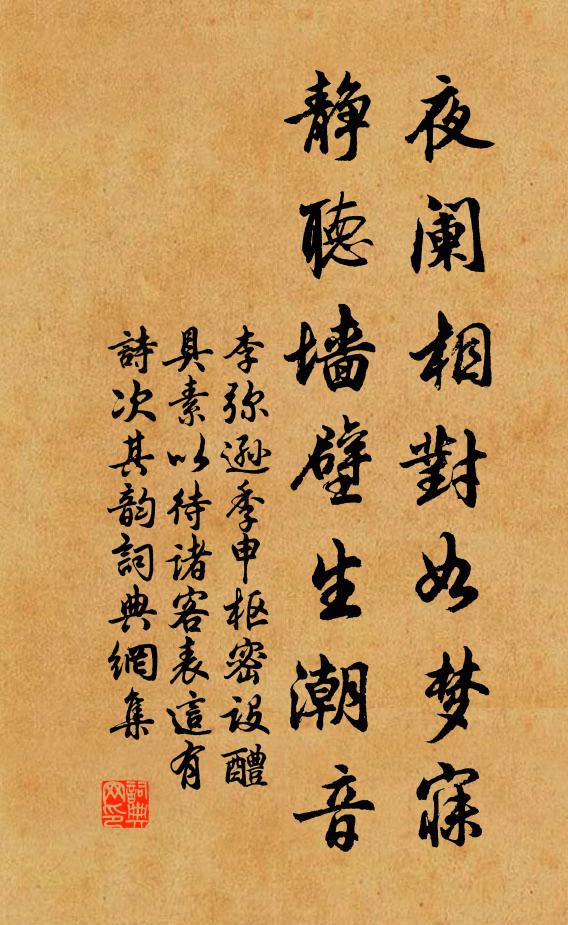 夜阑相對如梦寐
静聽墙壁生潮音
李弥遜季申枢密設醴
具素以待諸客表這有
詩次其韵詞典網集
詞典网印